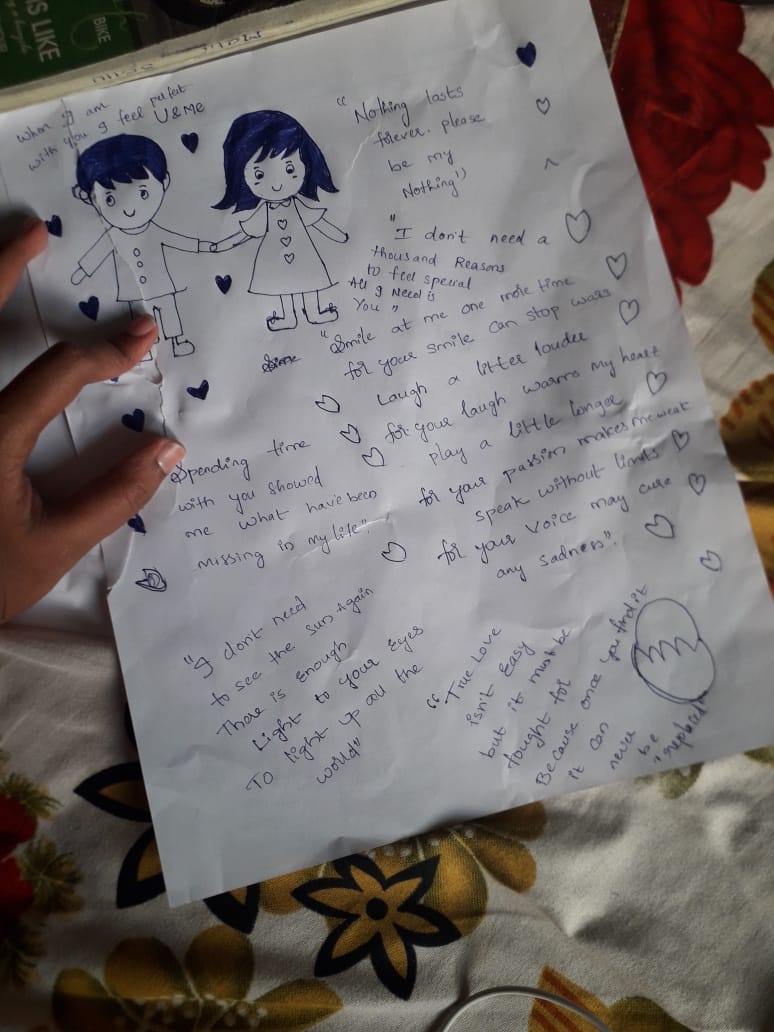 IS LIKE
BIKE
When I am
with you I feel perfect
U & Me
"Nothing lasts
forever. please
be my
Nothing"
"I don't need a
thousand Reasons
to feel special
All I Need is
You"
"Smile at me one more time
for your smile can stop wars
Laugh a litter louder
for your laugh warms My heart
play a little longer
for your passion makes me weak
speak without limits
for your voice may cure
any sadness".
Spending time
with you showed
me what have been
Missing in my life".
"I don't need
to see the sun Again
There is enough
Light to your Eyes
To light up all the
world"
"True Love
isn't Easy
but it must be
fought for
Because once you find it
it can
never
be
replaced"